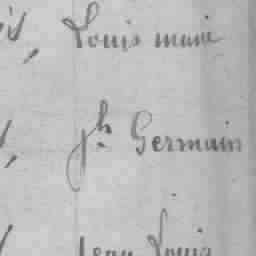 Louis marie
Jh Germain
Jean Louis